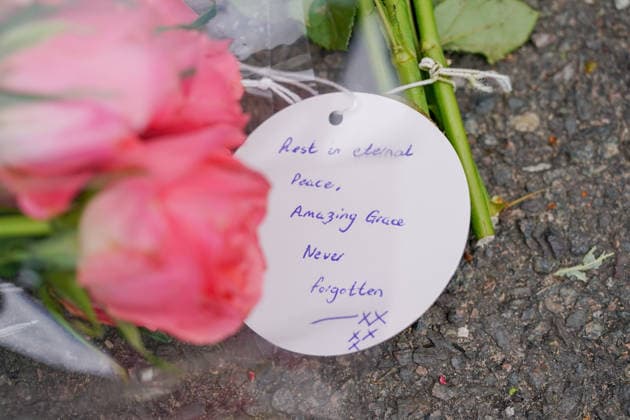 Rest in eternal
Peace,
Amazing Grace
Never
forgotten
— XX
XX
X